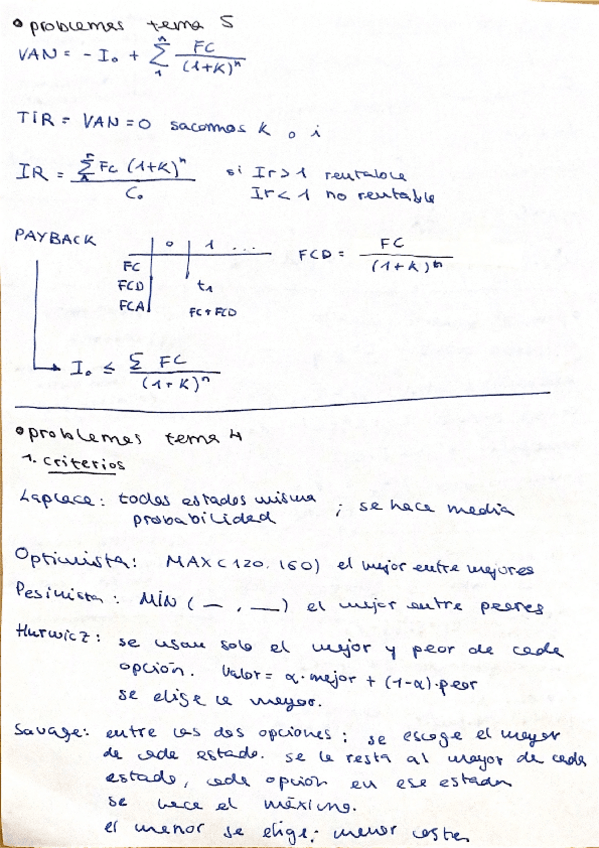 • problemas tema 5
VAN = - I₀ + Σ₁ⁿ FC / (1+K)ⁿ
TIR = VAN = 0 sacamos k o i
IR = Σ FC (1+K)ⁿ / C₀ si Ir > 1 rentable
Ir < 1 no rentable
PAYBACK 0 1 ... FCD = FC / (1+K)ⁿ
FC
FCD t₁
FCA FC+FCD
I₀ ≤ Σ FC / (1+K)ⁿ
• problemas tema 4
1. criterios
Laplace: todos estados misma ; se hace media
probabilidad
Optimista: MAX (120, 160) el mejor entre mejores
Pesimista: MÍN ( — , — ) el mejor entre peores
Hurwicz: se usan solo el mejor y peor de cada
opción. Valor = α·mejor + (1-α)·peor
se elige la mayor.
Savage: entre las dos opciones: se escoge el mayor
de cada estado. se le resta al mayor de cada
estado, cada opción en ese estado
se hace el máximo.
el menor se elige: menor coste